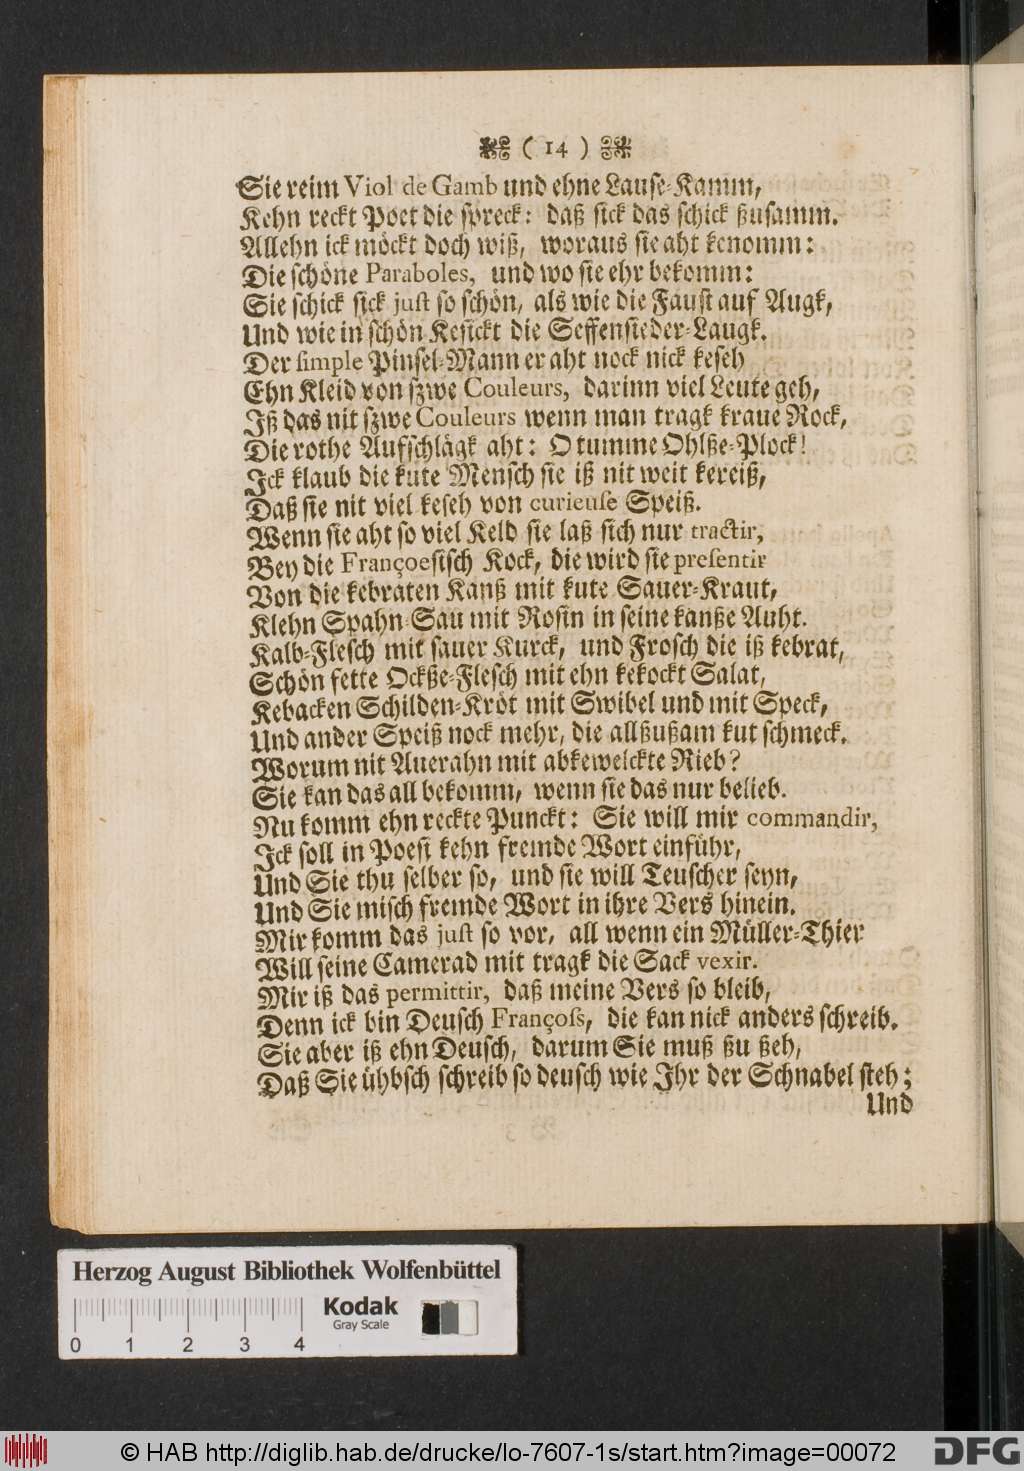 ( 14 )
Sie reim Viol de Gamb und ehne Lause-Kamm,
Kehn reckt Poet die spreck: daß sick das schick ßusamm.
Allehn ick möckt doch wiß, woraus sie aht kenomm:
Die schöne Paraboles, und wo sie ehr bekomm:
Sie schick sick just so schön, als wie die Faust auf Augk,
Und wie in schön Kesickt die Seffensieder-Laugk.
Der simple Pinsel-Mann er aht nock nick keseh
Ehn Kleid von szwe Couleurs, darinn viel Leute geh,
Iß das nit szwe Couleurs wenn man tragk kraue Rock,
Die rothe Aufschlägk aht: O tumme Ohlße-Plock!
Ick klaub die kute Mensch sie iß nit weit kereiß,
Daß sie nit viel keseh von curieuse Speiß.
Wenn sie aht so viel Keld sie laß sich nur tractir,
Bey die Françoesisch Kock, die wird sie presentir
Von die kebraten Kanß mit kute Sauer-Kraut,
Klehn Spahn-Sau mit Rosin in seine kanße Auht.
Kalb-Flesch mit sauer Kurck, und Frosch die iß kebrat,
Schön fette Ockße-Flesch mit ehn kekockt Salat,
Kebacken Schilden-Kröt mit Swibel und mit Speck,
Und ander Speiß nock mehr, die allßußam kut schmeck.
Worum nit Auerahn mit abkewelckte Rieb?
Sie kan das all bekomm, wenn sie das nur belieb.
Nu komm ehn reckte Punckt: Sie will mir commandir,
Ick soll in Poesi kehn fremde Wort einführ,
Und Sie thu selber so, und sie will Teuscher seyn,
Und Sie misch fremde Wort in ihre Vers hinein.
Mir komm das just so vor, all wenn ein Müller-Thier
Will seine Camerad mit tragk die Sack vexir.
Mir iß das permittir, daß meine Vers so bleib,
Denn ick bin Deusch Françoss, die kan nick anders schreib.
Sie aber iß ehn Deusch, darum Sie muß ßu ßeh,
Daß Sie ühbsch schreib so deusch wie Ihr der Schnabel steh;
Und
Herzog August Bibliothek Wolfenbüttel
Kodak
Gray Scale
0 1 2 3 4
© HAB http://diglib.hab.de/drucke/lo-7607-1s/start.htm?image=00072
DFG